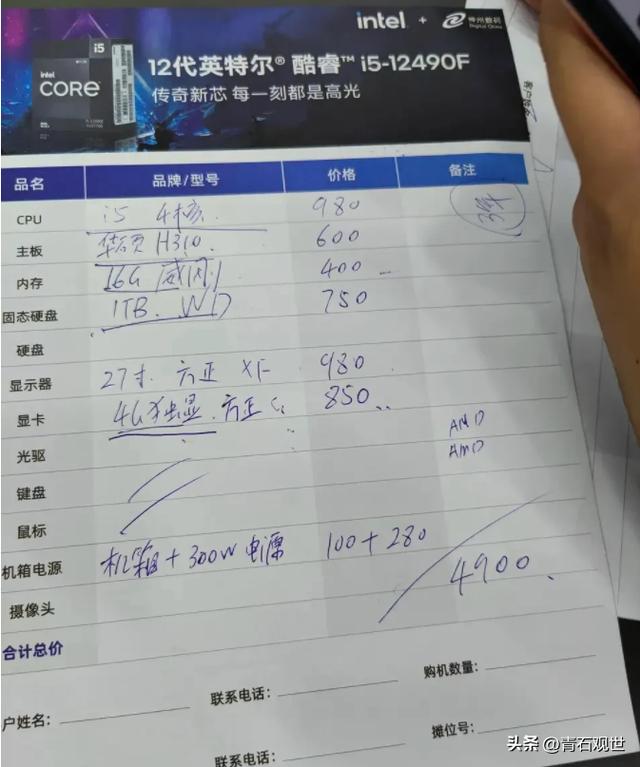 intel + 神州数码
Digital China
i5
intel
CORE
12代英特尔® 酷睿™ i5-12490F
传奇新芯 每一刻都是高光
品名 品牌/型号 价格 备注
CPU i5 4核. 980 3年
主板 华硕 H310. 600
内存 16G 400
固态硬盘 1TB. WD 750
硬盘
显示器 27寸. 方正 XF 980
显卡 4G独显. 方正 850
光驱 AMD
AMD
键盘
鼠标
机箱电源 机箱+300W 电源 100+280
4900
摄像头
合计总价
户姓名: 联系电话: 购机数量:
联系电话: 摊位号:
头条 @青石观世